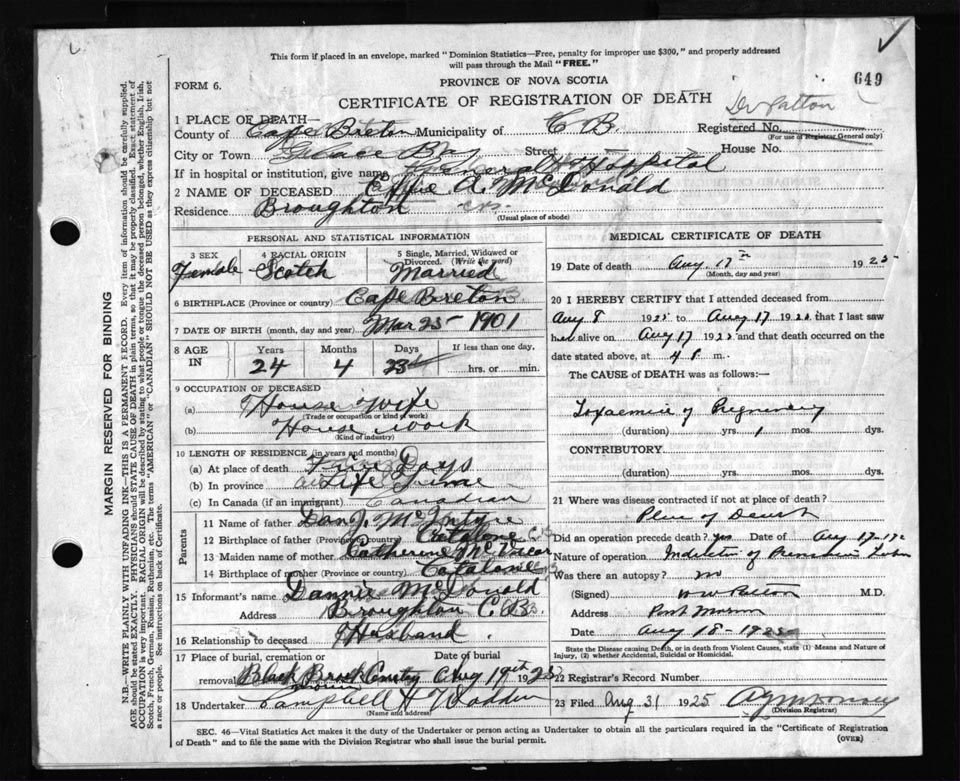 This form if placed in an envelope, marked "Dominion Statistics—Free, penalty for improper use $300," and properly addressed
will pass through the Mail "FREE."
649
FORM 6.
PROVINCE OF NOVA SCOTIA
CERTIFICATE OF REGISTRATION OF DEATH
Dr Patton
1 PLACE OF DEATH—
County of Cape Breton Municipality of C B.
Registered No.
(For use of Registrar General only)
City or Town Glace Bay Street House No.
If in hospital or institution, give name General Hospital
2 NAME OF DECEASED Effie A. McDonald
Residence Broughton C.B.
(Usual place of abode)
PERSONAL AND STATISTICAL INFORMATION
3 SEX Female
4 RACIAL ORIGIN Scotch
5 Single, Married, Widowed or Divorced. (Write the word) Married
6 BIRTHPLACE (Province or country) Cape Breton
7 DATE OF BIRTH (month, day and year) Mar 25 1901
8 AGE IN
Years Months Days If less than one day,
24 4 23 hrs. or min.
9 OCCUPATION OF DECEASED
(a) House Wife
(Trade or occupation or kind of work)
(b) House work
(Kind of industry)
10 LENGTH OF RESIDENCE (in years and months)
(a) At place of death Days
(b) In province Life Time
(c) In Canada (if an immigrant) Canadian
Parents
11 Name of father Dan J. McIntyre
12 Birthplace of father (Province or country) Catalone C B
13 Maiden name of mother Catherine McVicar
14 Birthplace of mother (Province or country) Catalone C B
15 Informant's name Dannie McDonald
Address Broughton C.B.
16 Relationship to deceased Husband.
17 Place of burial, cremation or Date of burial
removal Black Brook Cemetery Aug 19th 1925
18 Undertaker Campbell H
(Name and address)
MEDICAL CERTIFICATE OF DEATH
19 Date of death Aug. 17th 1925
(Month, day and year)
20 I HEREBY CERTIFY that I attended deceased from
Aug 8 1925 to Aug 17 1925 that I last saw
her alive on Aug 17 1925 and that death occurred on
date stated above, at 4 m.
The CAUSE of DEATH was as follows:—
Toxaemia of Pregnancy
(duration) yrs. 1 mos. dys.
CONTRIBUTORY
(duration) yrs. mos. dys.
21 Where was disease contracted if not at place of death?
Place of Death
Did an operation precede death? yes Date of Aug 17-
Nature of operation of
Was there an autopsy? no
(Signed) Patton M.D.
Address Port Morien
Date Aug 18 - 1925
State the Disease causing Death, or in death from Violent Causes, state (1) Means and Nature of
Injury, (2) whether Accidental, Suicidal or Homicidal.
22 Registrar's Record Number
23 Filed Aug 31 1925
(Division Registrar)
SEC. 46—Vital Statistics Act makes it the duty of the Undertaker or person acting as Undertaker to obtain all the particulars required in the "Certificate of Registration
of Death" and to file the same with the Division Registrar who shall issue the burial permit.
(OVER)
MARGIN RESERVED FOR BINDING
N.B.—WRITE PLAINLY WITH UNFADING INK—THIS IS A PERMANENT RECORD. Every item of information should be carefully supplied.
AGE should be stated EXACTLY. PHYSICIANS should STATE CAUSE OF DEATH in plain terms, so that it may be properly classified. Exact statement of
OCCUPATION is very important. RACIAL ORIGIN will be described by stating to what people or tongue the deceased person belonged, whether English, Irish,
Scotch, French, German, Russian, Ruthenian, etc. The terms "AMERICAN" or "CANADIAN" SHOULD NOT BE USED as they express citizenship but not
a race or people. See instructions on back of Certificate.